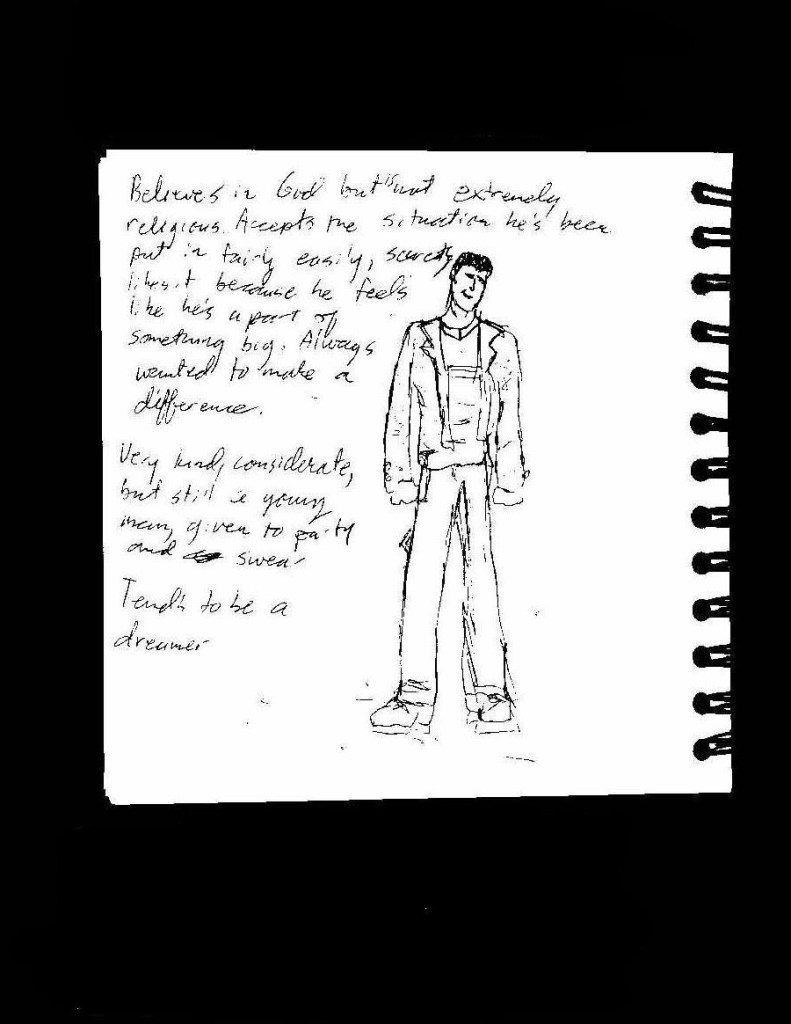 Believes in God but is not extremely
religious. Accepts the situation he's been
put in fairly easily, secretly
likes it because he feels
like he's a part of
something big. Always
wanted to make a
difference.
Very kind, considerate,
but still a young
man, given to party
and swear
Tends to be a
dreamer